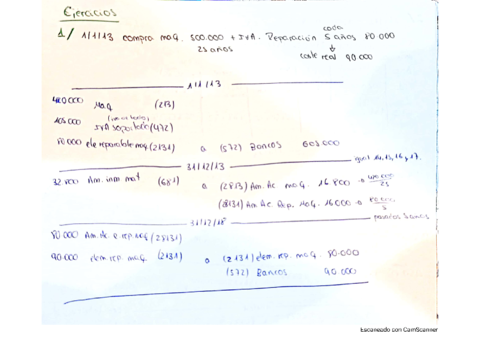 Ejercicios
1/ 1/1/13 compra maq. 500.000 + IVA. Reparación cada 5 años 80 000
25 años coste real 90 000
1/1/13
420 000 Maq (213)
105 000 IVA soportado (472)
80 000 ele reparable maq (2131) a (572) Bancos 605 000
31/12/13 igual 14, 15, 16, 17.
32 800 Am. inm mat (681) a (2813) Am. Ac maq. 16 800 → 25
(28131) Am. Ac Rep. Maq. 16 000 → 80 000 / 5
31/12/18
80 000 Am. Ac R rep maq (28131)
90 000 elem rep. maq. (2131) a (2131) elem. rep. maq. 80.000
(572) Bancos 90 000
Escaneado con CamScanner